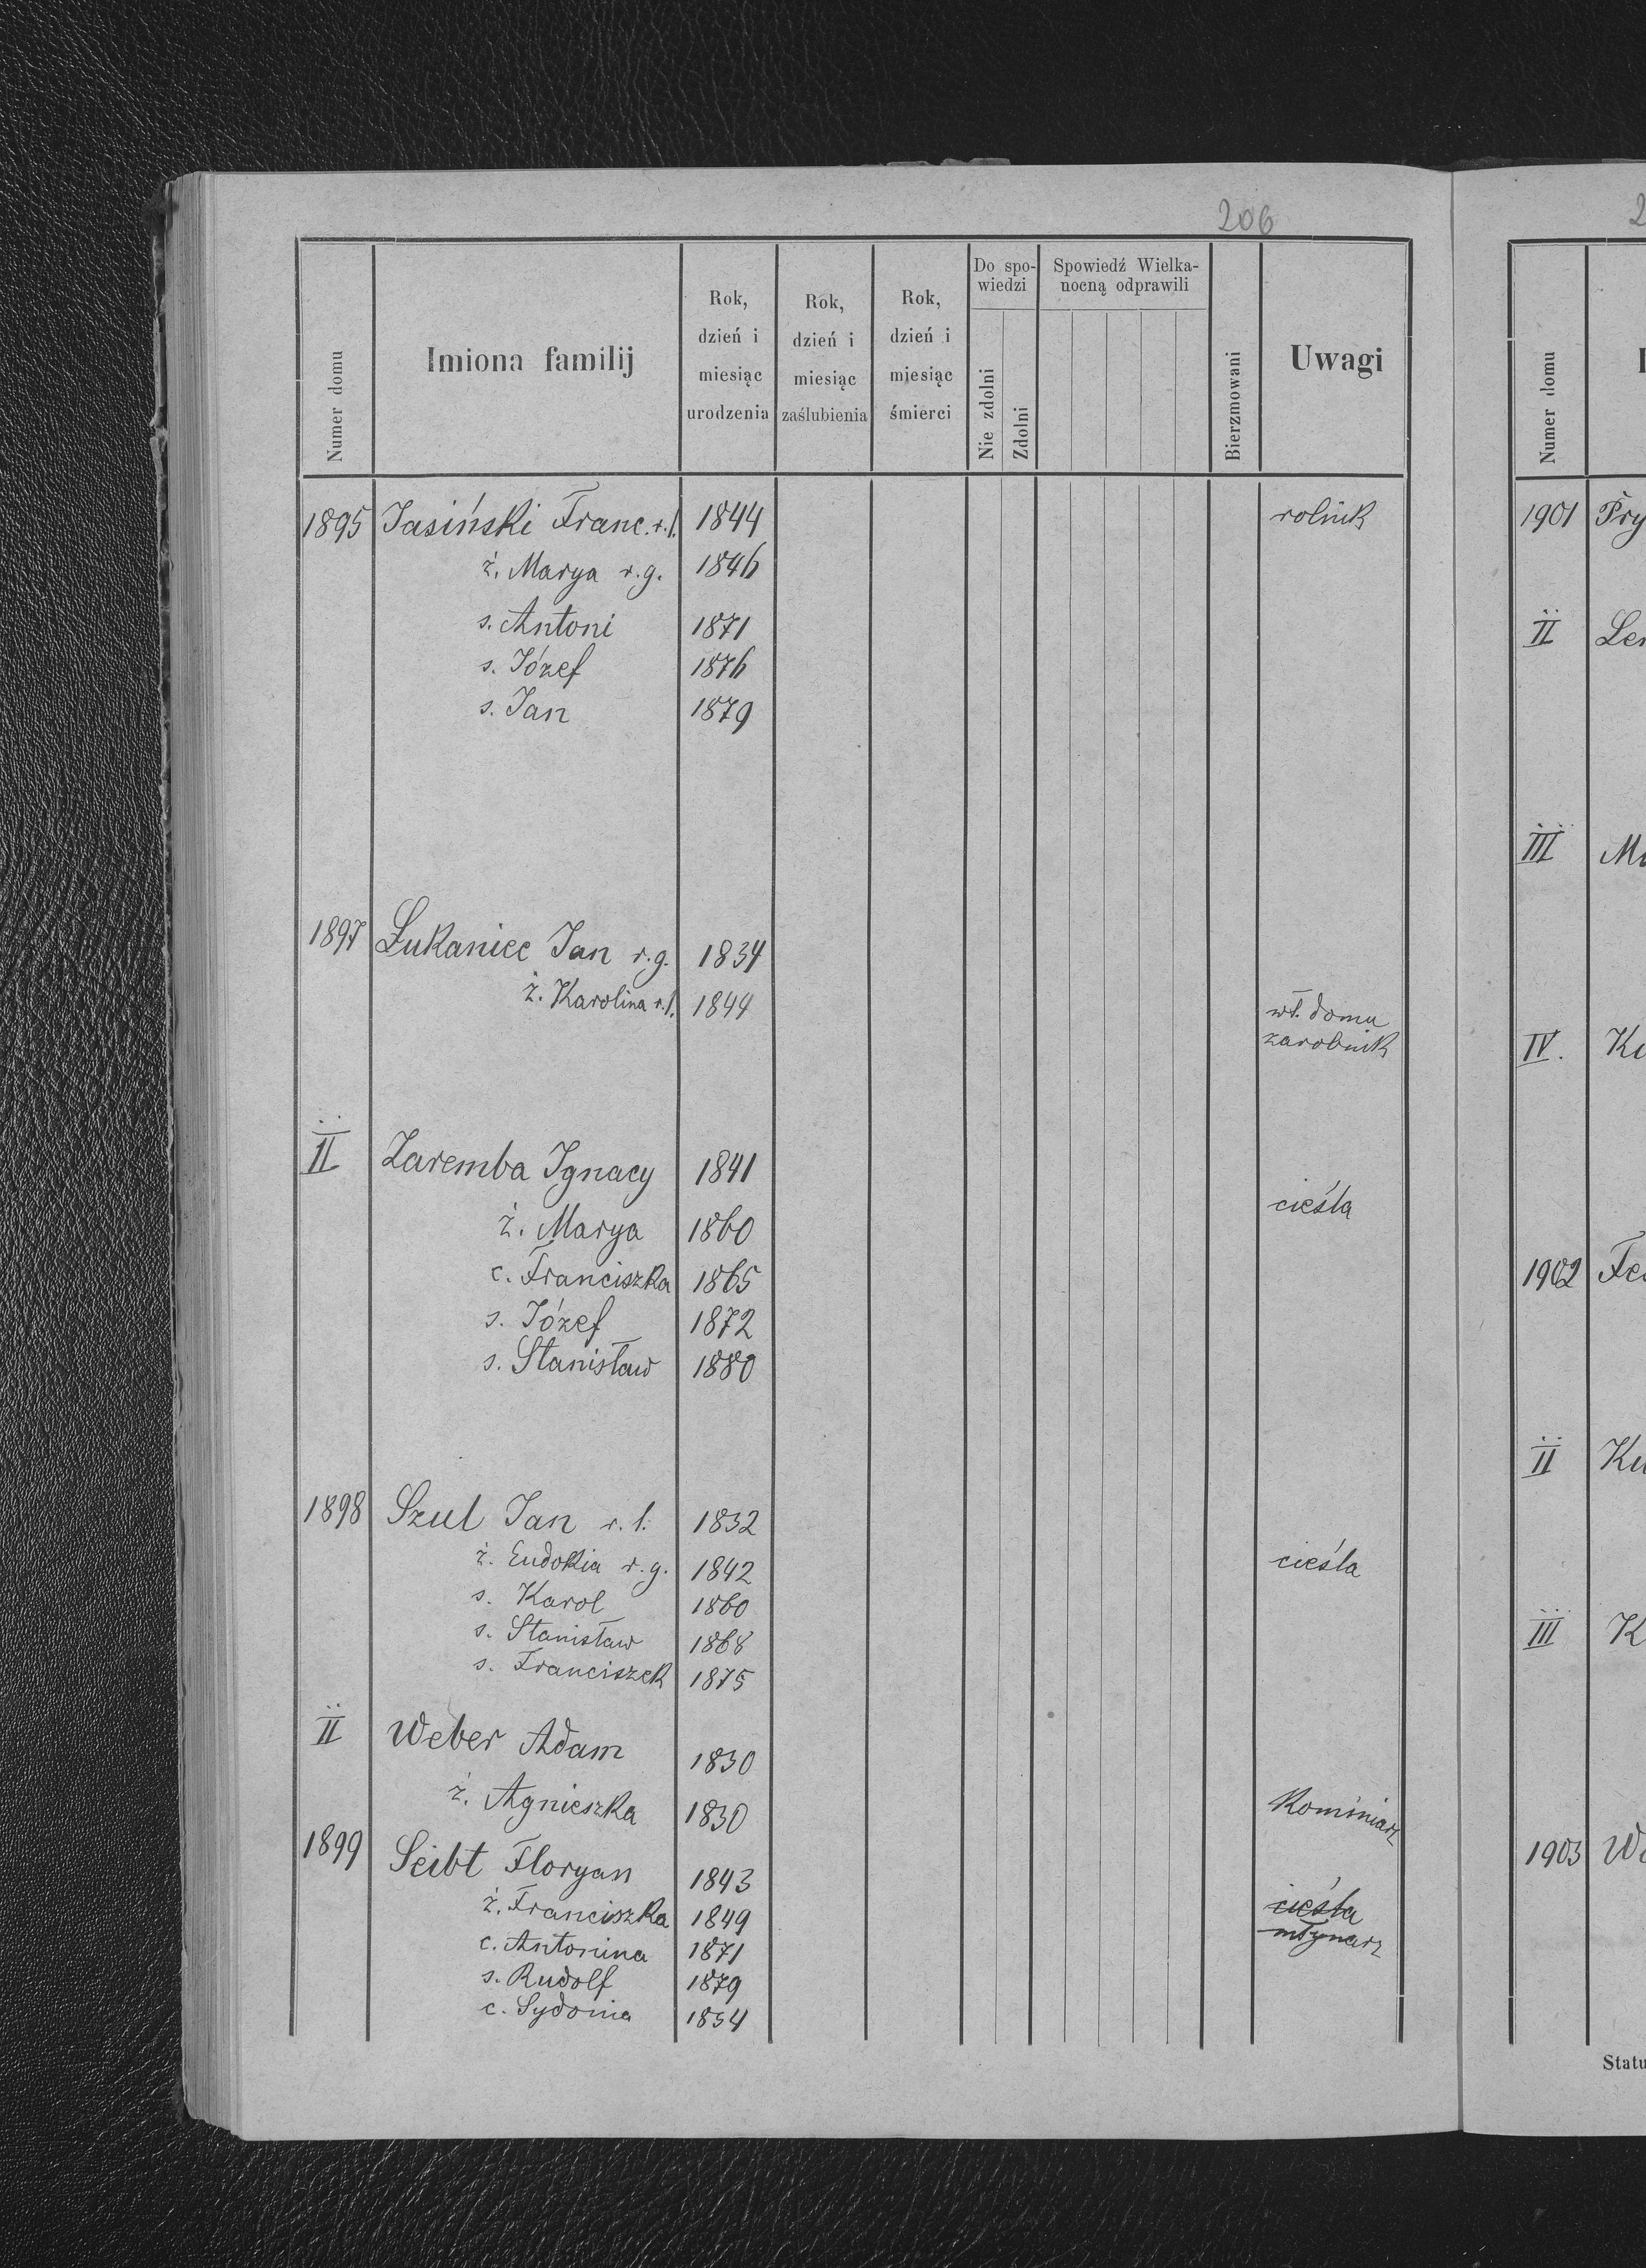 206
Numer domu
Imiona familij
Rok, dzień i miesiąc urodzenia
Rok, dzień i miesiąc zaślubienia
Rok, dzień i miesiąc śmierci
Do spo-
wiedzi
Nie zdolni
Zdolni
Spowiedź Wielka-
nocną odprawili
Bierzmowani
Uwagi
Numer domu
1895 Jasiński Franc. r.ł. 1844 rolnik
ż. Marya r.g. 1846
s. Antoni 1871
s. Józef 1876
s. Jan 1879
1897 Łukaniec Jan r.g. 1834
ż. Karolina r.ł. 1844
wł. domu
zarobnik
II Zaremba Ignacy 1841
cieśla
ż. Marya 1860
c. Franciszka 1865
s. Józef 1872
s. Stanisław 1880
1898 Szul Jan r.ł. 1832
ż. Eudokia r.g. 1842 cieśla
s. Karol 1860
s. Stanisław 1868
s. Franciszek 1875
II Weber Adam 1830
ż. Agnieszka 1830 Kominiarz
1899 Seibt Floryan 1843
ż. Franciszka 1849 cieśla
c. Antonina 1871 młynarz
s. Rudolf 1879
c. Sydonia 1854
1901 Pry
II Le
III M
IV. K
1902 Fe
II Ku
III K
1903 W
Statu